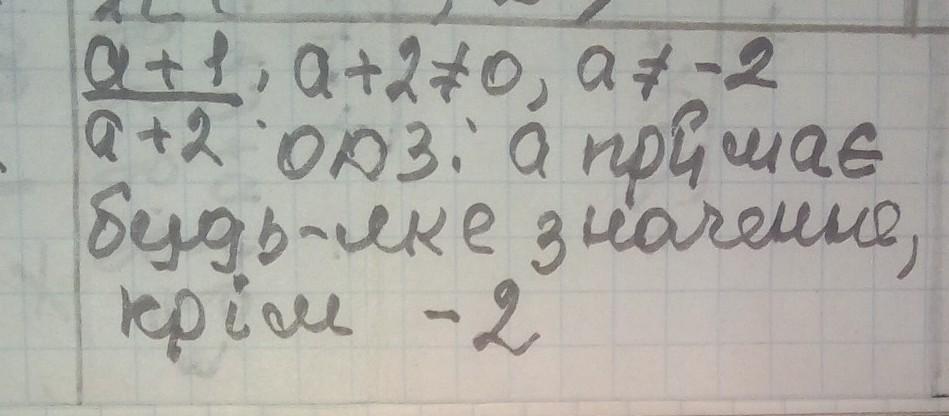 a + 1 , a + 2 ≠ 0, a ≠ - 2
a + 2 ОДЗ: а приймає
будь-яке значення,
крім - 2